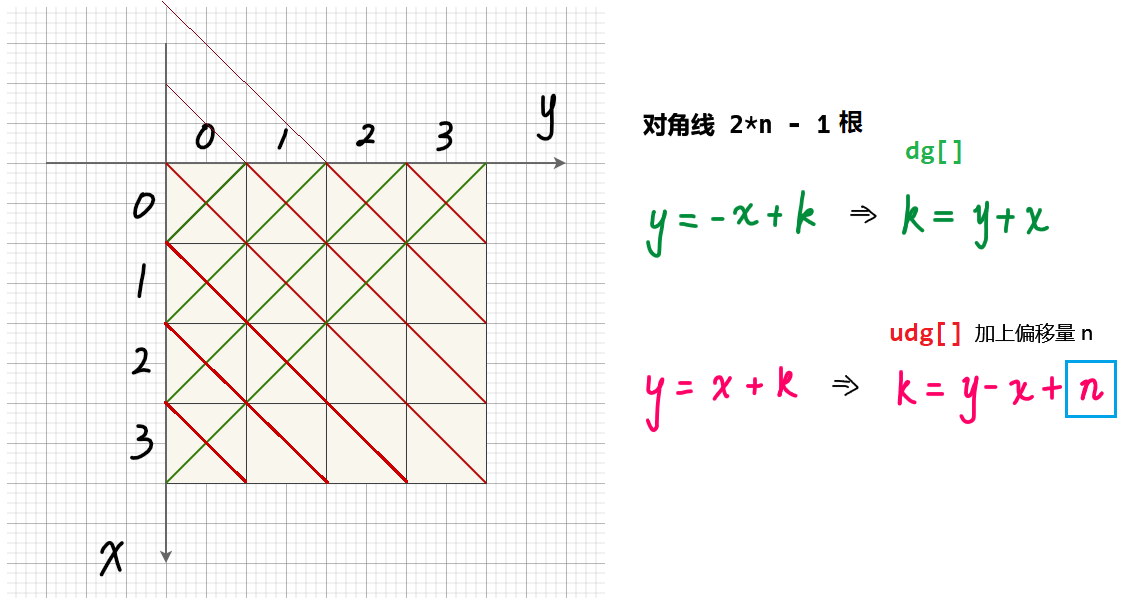 0 1 2 3 y
0
1
2
3
x
对角线 2*n - 1 根
dg[]
y = -x + k ⇒ k = y + x
udg[] 加上偏移量 n
y = x + k ⇒ k = y - x + n